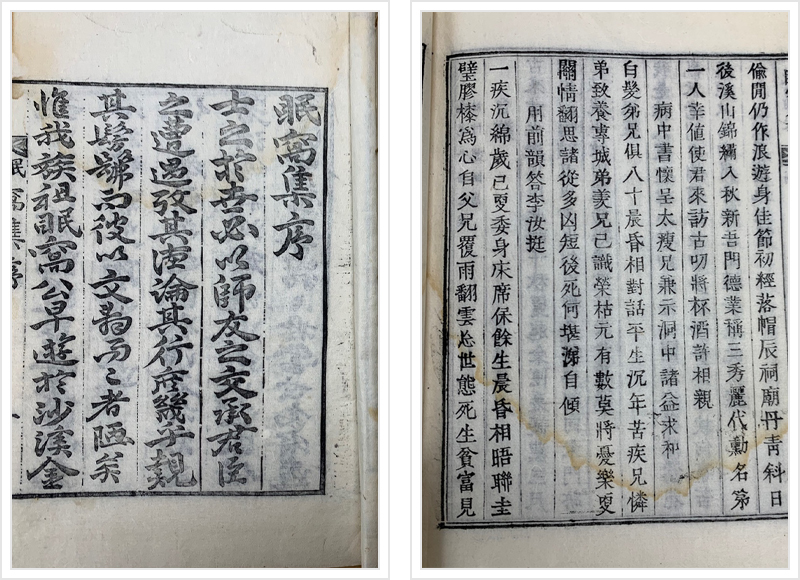 眠窩集序
士之於世必以師友之交承君臣
之遭遇攷其書論其行庶幾乎覩
其髣髴而彼以文 而已者陋矣
惟我族祖眠窩公早遊於沙溪金
眠窩集序
偸閒仍作浪遊身佳節初經落帽辰祠廟丹靑科日
後溪山錦繡入秋新吾門德業稱三秀麗代勳名第
一人幸値使君來訪古叨將杯酒許相親
病中書懷呈太瘦兄兼示洞中諸益求和
白髮弟兄俱八十晨昏相對話平生沉年苦疾兄憐
弟致養專城弟羨兄已識榮枯元有數莫將憂樂更
關情翻思諸從多凶短後死何堪淚自傾
用前韻答李汝挺
一疾沉綿歲已更委身床席保餘生晨昏相晤聯圭
璧膠桼爲心自父兄覆雨翻雲 世態死生貧富見